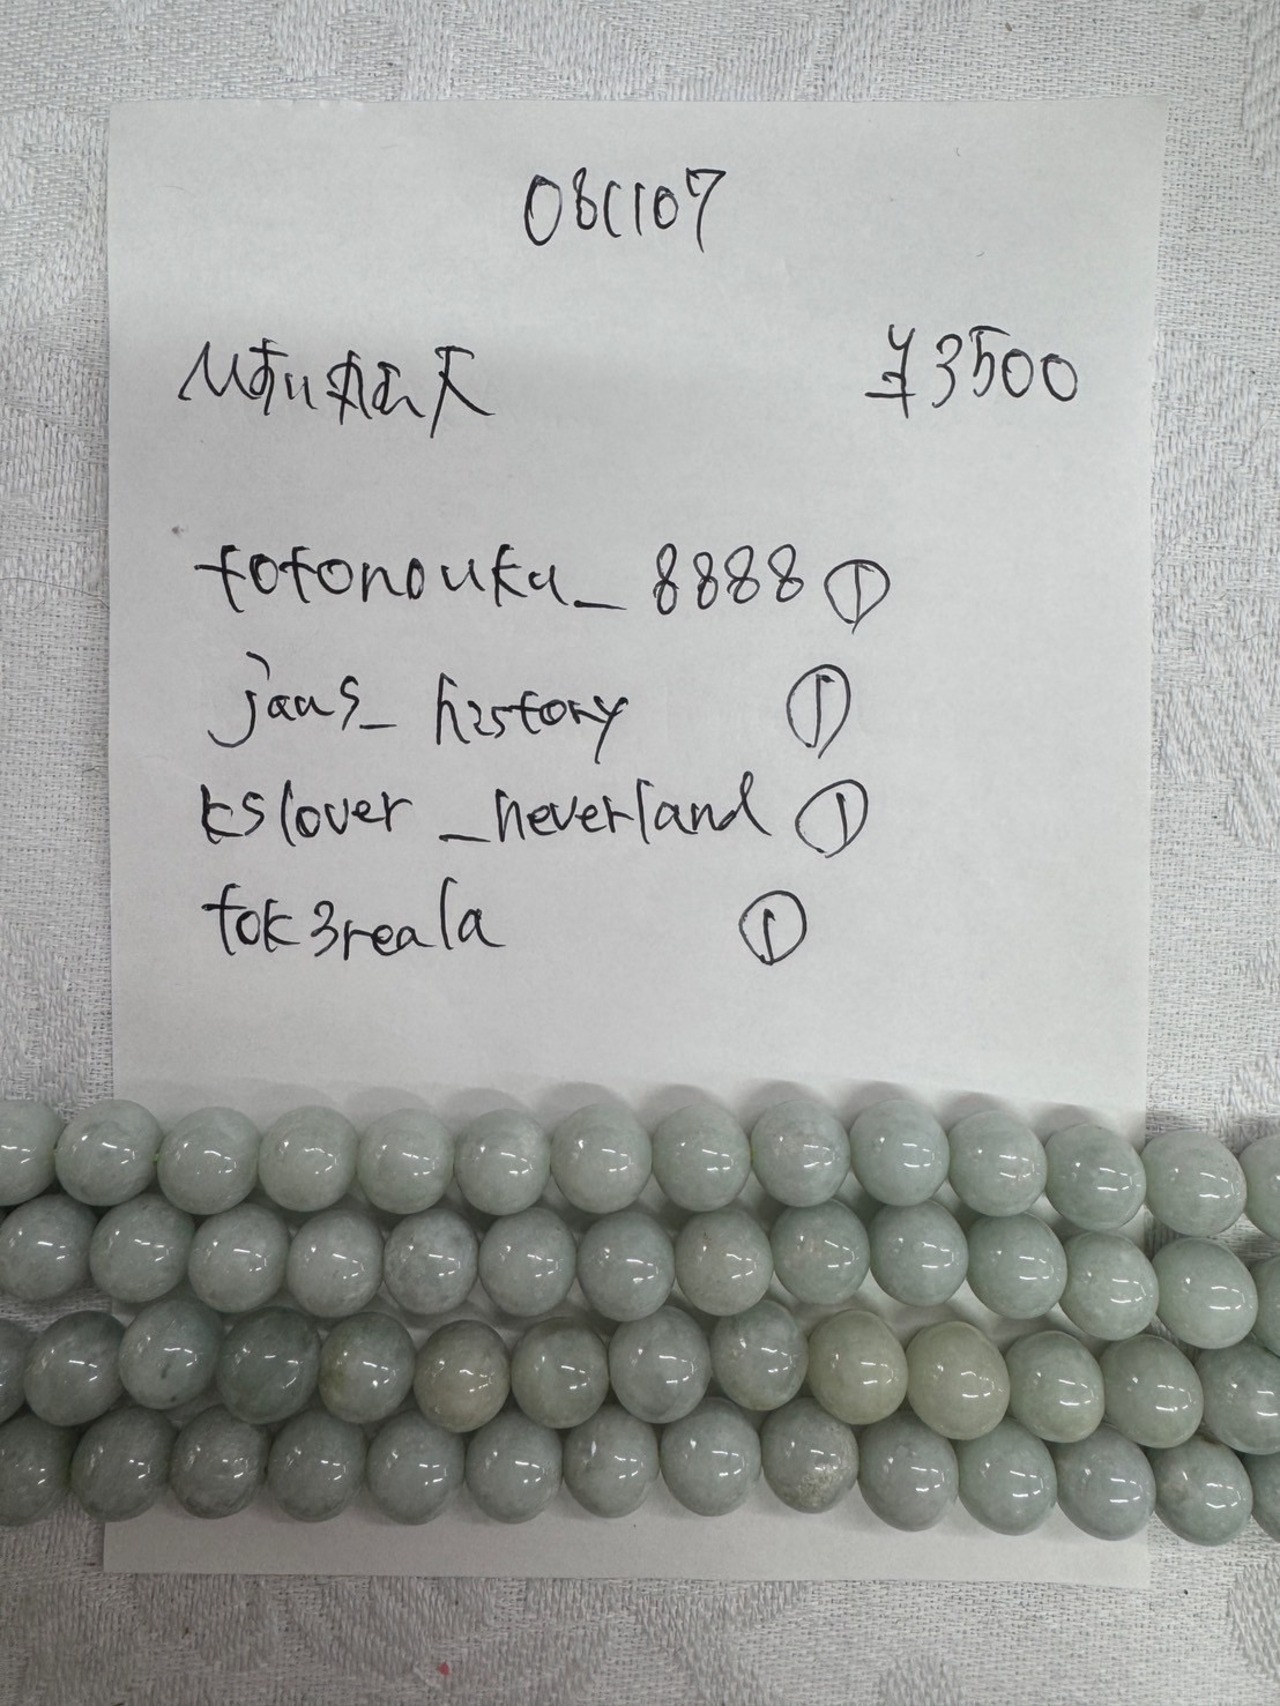 08C107
¥3500
totonouka_8888 ①
jaas_history ①
kslover_neverland ①
tok3reala ①